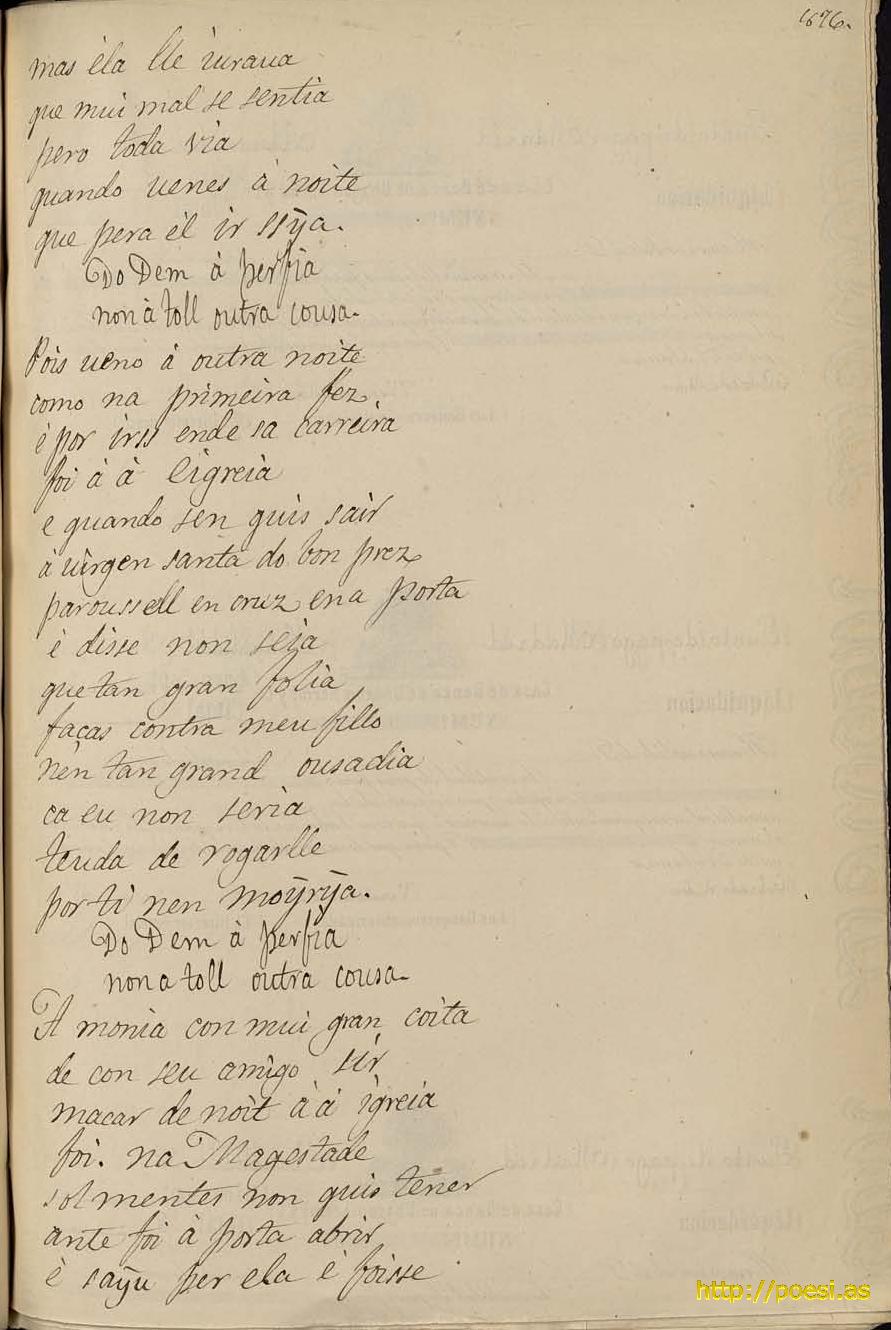 676.
mas èla lle iuraua
que mui mal se sentia
pero toda via
quando uenes à noite
que pera èl ir ssÿa.
Do Dem à perfia
non à toll outra cousa.
Pois ueno à outra noite
como na primeira fez
è por irss ende sa carreira
foi à à eigreia
e quando sen quis sair
à uirgen santa do bon prez
paroussell en cruz ena porta
è disse non seia
que tan gran folia
facas contra meu fillo
nèn tan grand ousadia
ca eu non seria
teuda de rogarlle
por ti nen moÿrÿa.
Do Dem à perfia
non a toll outra cousa.
A monia con mui gran coita
de con seu amigo sir
macar de noit à à igreia
foi. na Magestade
sol mentes non quis tener
ante foi à porta abrir
è saÿu per ela è foisse
http://poesi.as